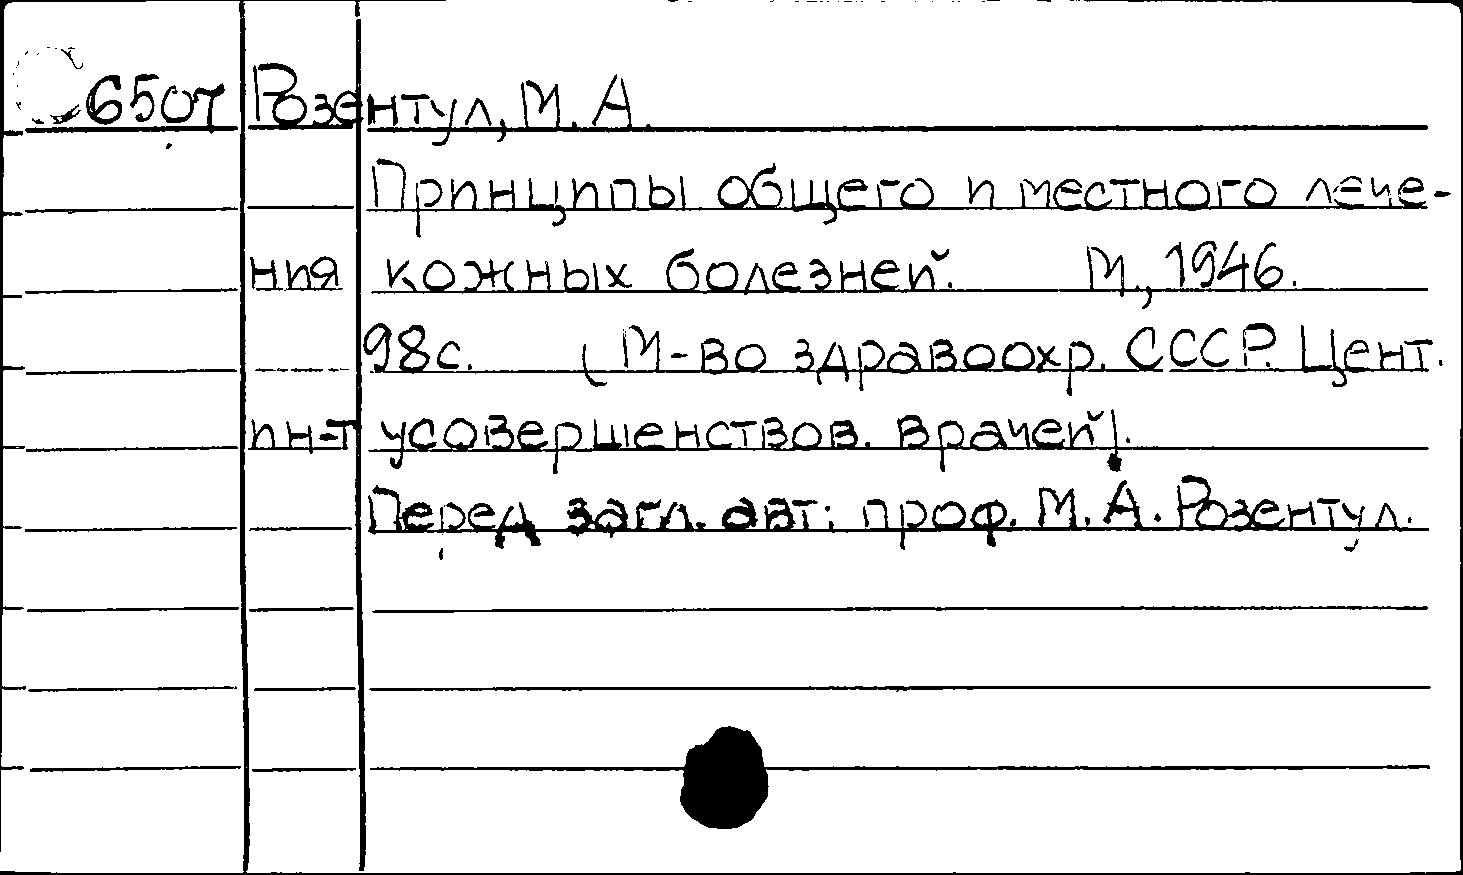 С6507 Розентул, М. А.
Принципы общего и местного лече-
ния кожных болезней. М., 1946.
98с. (М-во здравоохр. СССР. Цент.
ин-т усовершенствов. врачей).
Перед загл. авт: проф. М. А. Розентул.